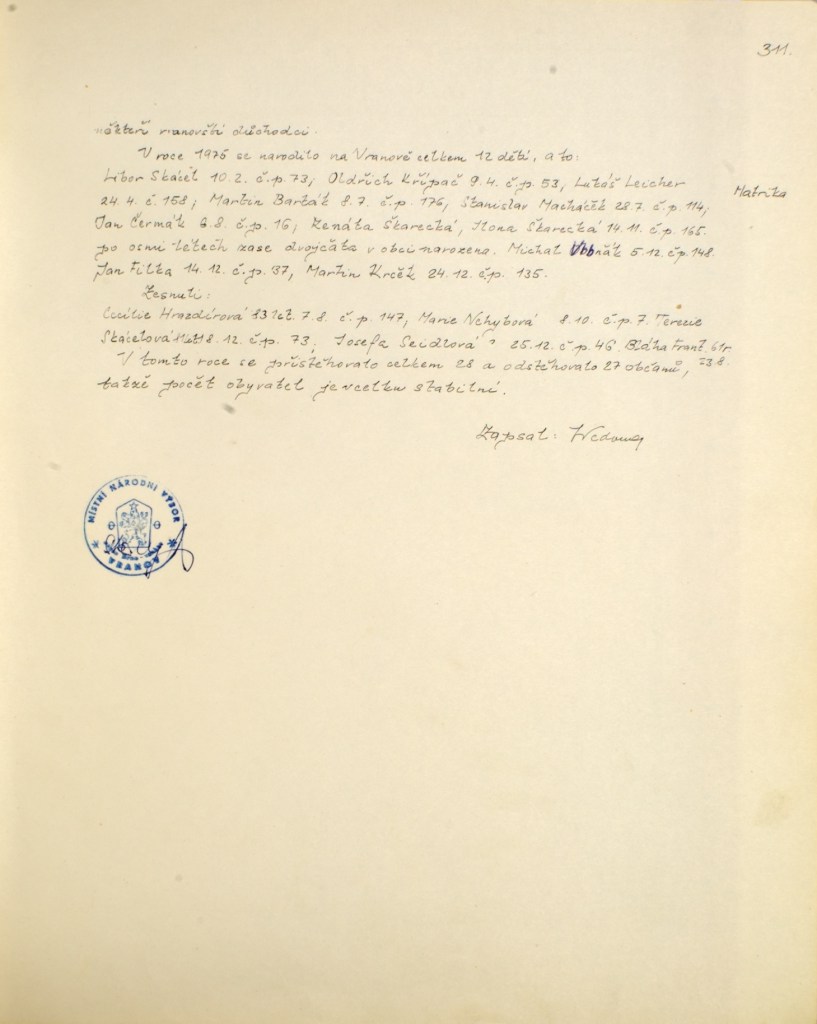 311.
někteří vranovští důchodci.
V roce 1975 se narodilo na Vranově celkem 12 dětí, a to:
Libor Skácel 10.2. č.p. 73, Oldřich Křípač 9.4. č.p. 53, Lukáš Leicher
Matrika
24.4. č. 158, Martin Barták 8.7. č.p. 176, Stanislav Macháček 28.7. č.p. 114,
Jan Čermák 6.8. č.p. 16, Renáta Škarecká, Ilona Škarecká 14.11. č.p. 165.
po osmi létech zase dvojčata v obci narozena. Michal 5.12. č.p. 148.
Jan Filka 14.12. č.p. 37, Martin Krček 24.12. č.p. 135.
Zesnulí:
Cecilie Hrazdírová 83 let. 7.8. č.p. 147, Marie Nehybová 8.10. č.p. 7. Terezie
Skácelová 8.12. č.p. 73, Josefa Seidlová 25.12. č.p. 46. Bláha Frant. 61r.
V tomto roce se přistěhovalo celkem 28 a odstěhovalo 27 občanů, 23.8.
takže počet obyvatel je vcelku stabilní.
Zapsal:
MÍSTNÍ NÁRODNÍ VÝBOR
VRANOV